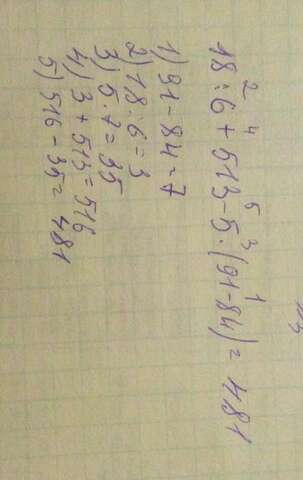 2 4 5 3 1
18 : 6 + 513 - 5 · (91 - 84) = 481
1) 91 - 84 = 7
2) 18 : 6 = 3
3) 5 · 7 = 35
4) 3 + 513 = 516
5) 516 - 35 = 481